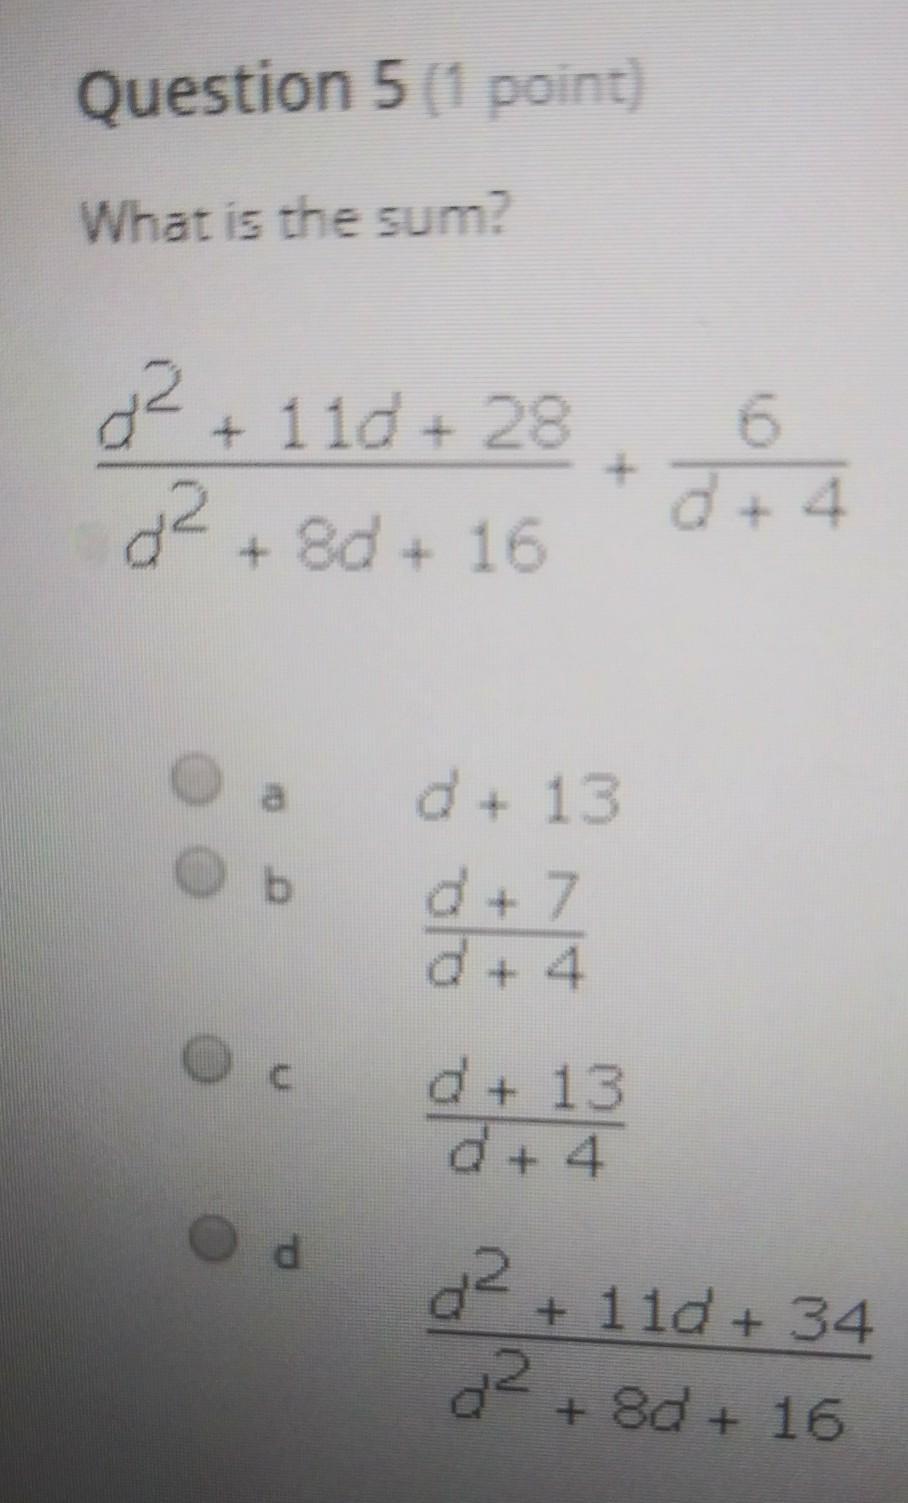 Question 5 (1 point)
What is the sum?
d² + 11d + 28 / d² + 8d + 16 + 6 / d + 4
a d + 13
b d + 7 / d + 4
c d + 13 / d + 4
d d² + 11d + 34 / d² + 8d + 16